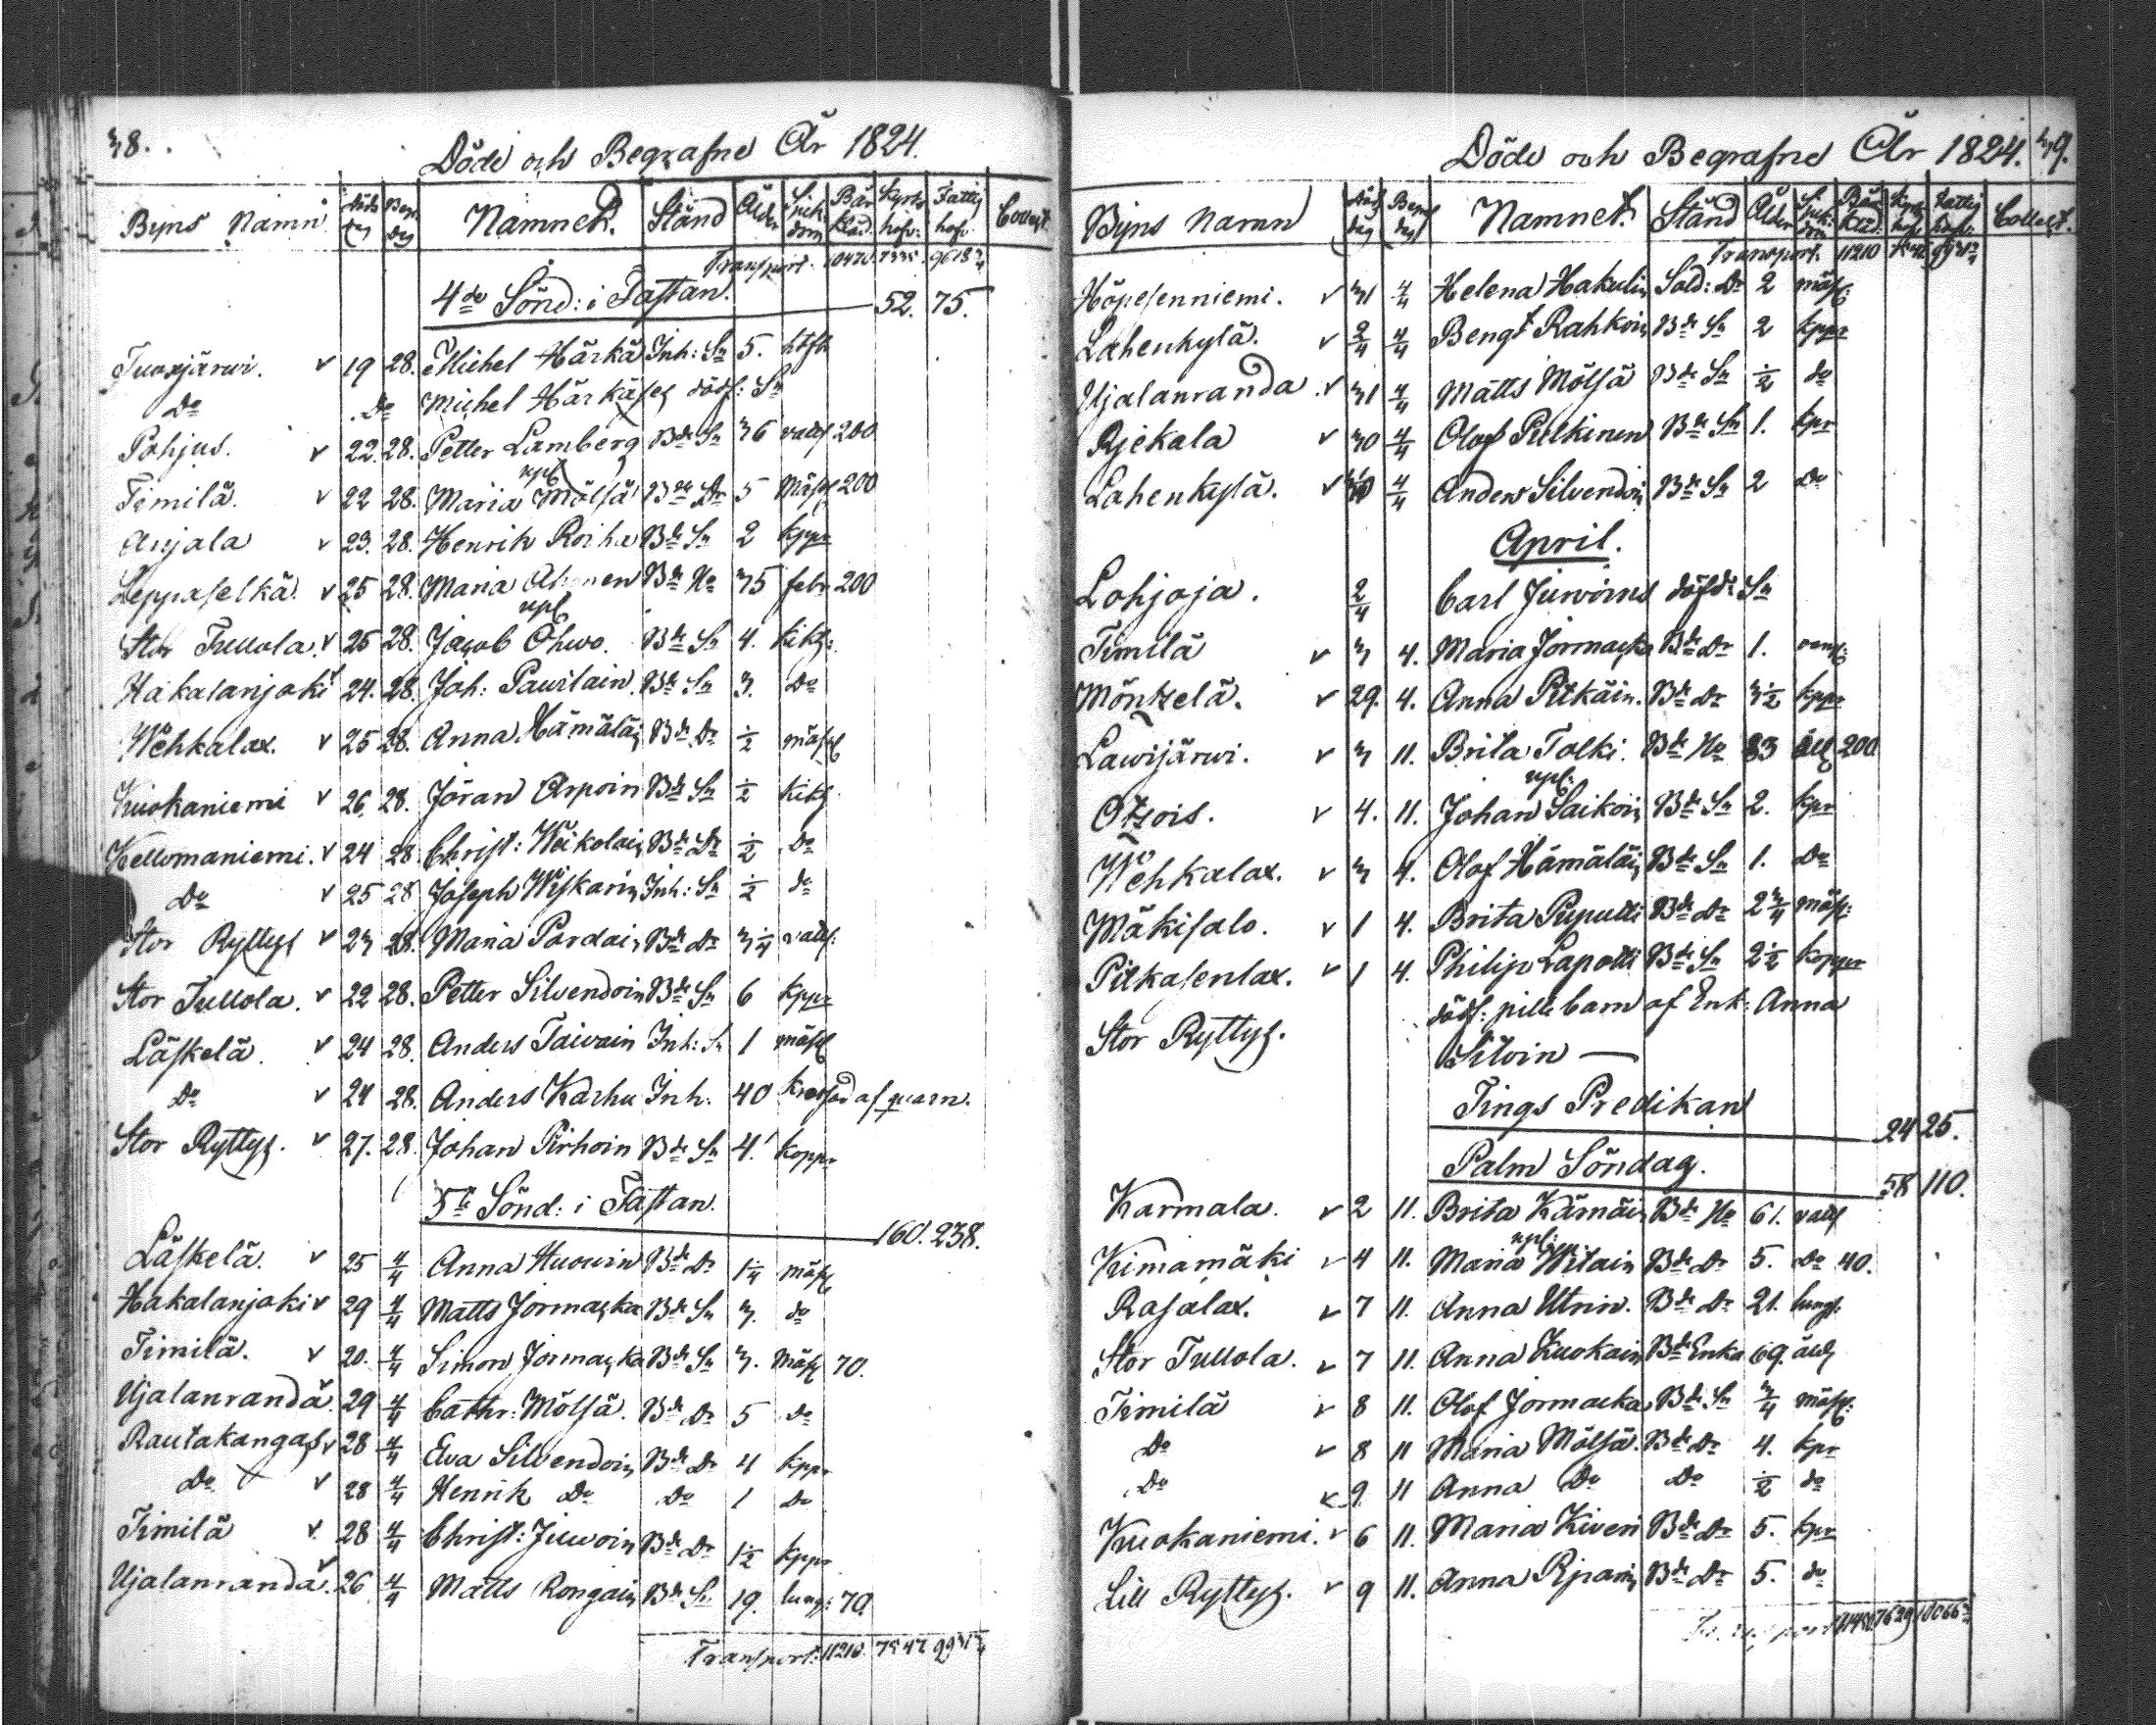 38.
Döde och Begrafne År 1824.
Byns Namn Döds dag Begr: dag Namnet. Stånd Ålder Sjukdom Bår Kläd. Kyrko hofv: Fattig hofv. Collect.
Transport.
4de Sönd: i Fastan. 52. 75.
Tuoxjärwi. v 19 28. Michel Härkä Inh: Sn 5.
Do Do Michel Härkäses dödf: Sn
Pohjus. v 22. 28. Petter Lamberg Bde Sn 36 vatts 200
Timilä. v 22 28. Maria Mölsä Bde Dr 5 Mässl 200
Anjala v 23. 28. Henrik Roiha Bde Sn 2 kppr
Leppäselkä. v 25 28. Maria Bde Ha 35 febr 200
Stor Tullola. v 25 28. Jacob Ohwo. Bde Sn 4. kikh:
Hakalanjoki v 24. 28. Joh: Pawilain Bde Sn 3. Do
Wehkalax. v 25 28. Anna Hämäläin Bde Dr ½ mässl
Kuokaniemi v 26. 28. Jöran Arpoin Bde Sn ½ kikh
Kellomaniemi. v 24 28 Christ: Weikolain Bde Dr ½ Do
Do v 25 28 Joseph Wiskarin Inh: Sn ½ do
Stor Ryttyg v 23 28. Maria Pardain Bde Dr 3¼ vatts:
Stor Tullola. v 22 28. Petter Silvendoin Bde Sn 6 kppr
Läskelä. v 24 28. Anders Taivain Inh: Sn 1 mässl
Do v 24 28. Anders Karhu Inh. 40 krossad af quarn.
Stor Ryttyg. v 27. 28. Johan Pirhoin Bde Sn 4. koppr
5te Sönd: i Fastan. 160. 238.
Läskelä. v 25 4/4 Anna Huowin Bde Dr 1¼ mässl
Hakalanjoki v 29 4/4 Matts Jormacka Bde Sn 3. do
Timilä. v 20. 4/4 Simon Jormacka Bde Sn 3. Mässl 70.
Ujalanranda 29 4/4 Cathr: Mölsä. Bde Dr 5 do
Rautakangas v 28 4/4 Elva Silvendoin Bde Dr 4 kppr
Do v 28 4/4 Henrik Do Do 1 Do
Timilä v 28 4/4 Christ: Juwoin Bde Dr 1½ kppr
Ujalanranda. v 26 4/4 Matts Rongain Bde Sn 19. lungs: 70.
Transport: 11210.
39.
Döde och Begrafne År 1824.
Byns namn Döds dag Begr: dag Namnet. Stånd Ålder Sjuk dom Bår kläd. Kyrk hofv Fattig hofv: Collect.
Transport. 11210
Höpesenniemi. v 31 4/4 Helena Hakulin Sold: Dr 2 mässl:
Lahenkylä. v 2/4 4/4 Bengt Rahkoin Bde Sn 2 kppr
Ujalanranda. v 31 4/4 Matts Mölsä Bde Sn ½ do
Rjekala v 30 4/4 Olof Pulkinen Bde Sn 1. kpr
Lahenkylä. v 4/4 Anders Silvendoin Bde Sn 2 Do
April.
Lohjoja. 2/4 Carl Juvoins dödfdr Sn
Timilä v 3 4. Maria Jormacka Bde Dr 1.
Möntzelä. v 29. 4. Anna Pitkäin. Bde Dr 3½ kppr
Lawijärwi. v 3 11. Brita Tolki. Bde Ha 83 åld 200
Otzois. v 4. 11. Johan Saikoin Bde Sn 2. kpr
Wehkalax. v 3 4. Olof Hämäläin Bde Sn 1. Do
Mäkisalo. v 1 4. Brita Puputti Bde Dr 2¾ mässl:
Pitkasenlax. v 1 4. Philip Lapotti Bde Sn 2½ koppr
Stor Ryttyg. dödf: pille barn af Enk: Anna
Silvin —
Tings Predikan 24 25.
Palm Söndag. 58 110.
Karmala. v 2 11. Brita Kärnäin Bde Ha 61. vatts
Kimamäki v 4 11. Maria Wilain Bde Dr 5. Do 40.
Rasalax. v 7 11. Anna Utrin. Bde Dr 21. lungs.
Stor Tullola. v 7 11. Anna Kuokain Bde Enka 69. åld
Timilä v 8 11. Olof Jormacka Bde Sn ¾ mässl:
Do v 8 11 Maria Mölsä. Bde Dr 4. kpr
Do v 9. 11 Anna Do Do ½ do
Kuokaniemi. v 6 11. Maria Kiveri Bde Dr 5. kpr
Lill Ryttyg. v 9 11. Anna Bde Dr 5. do
Transport